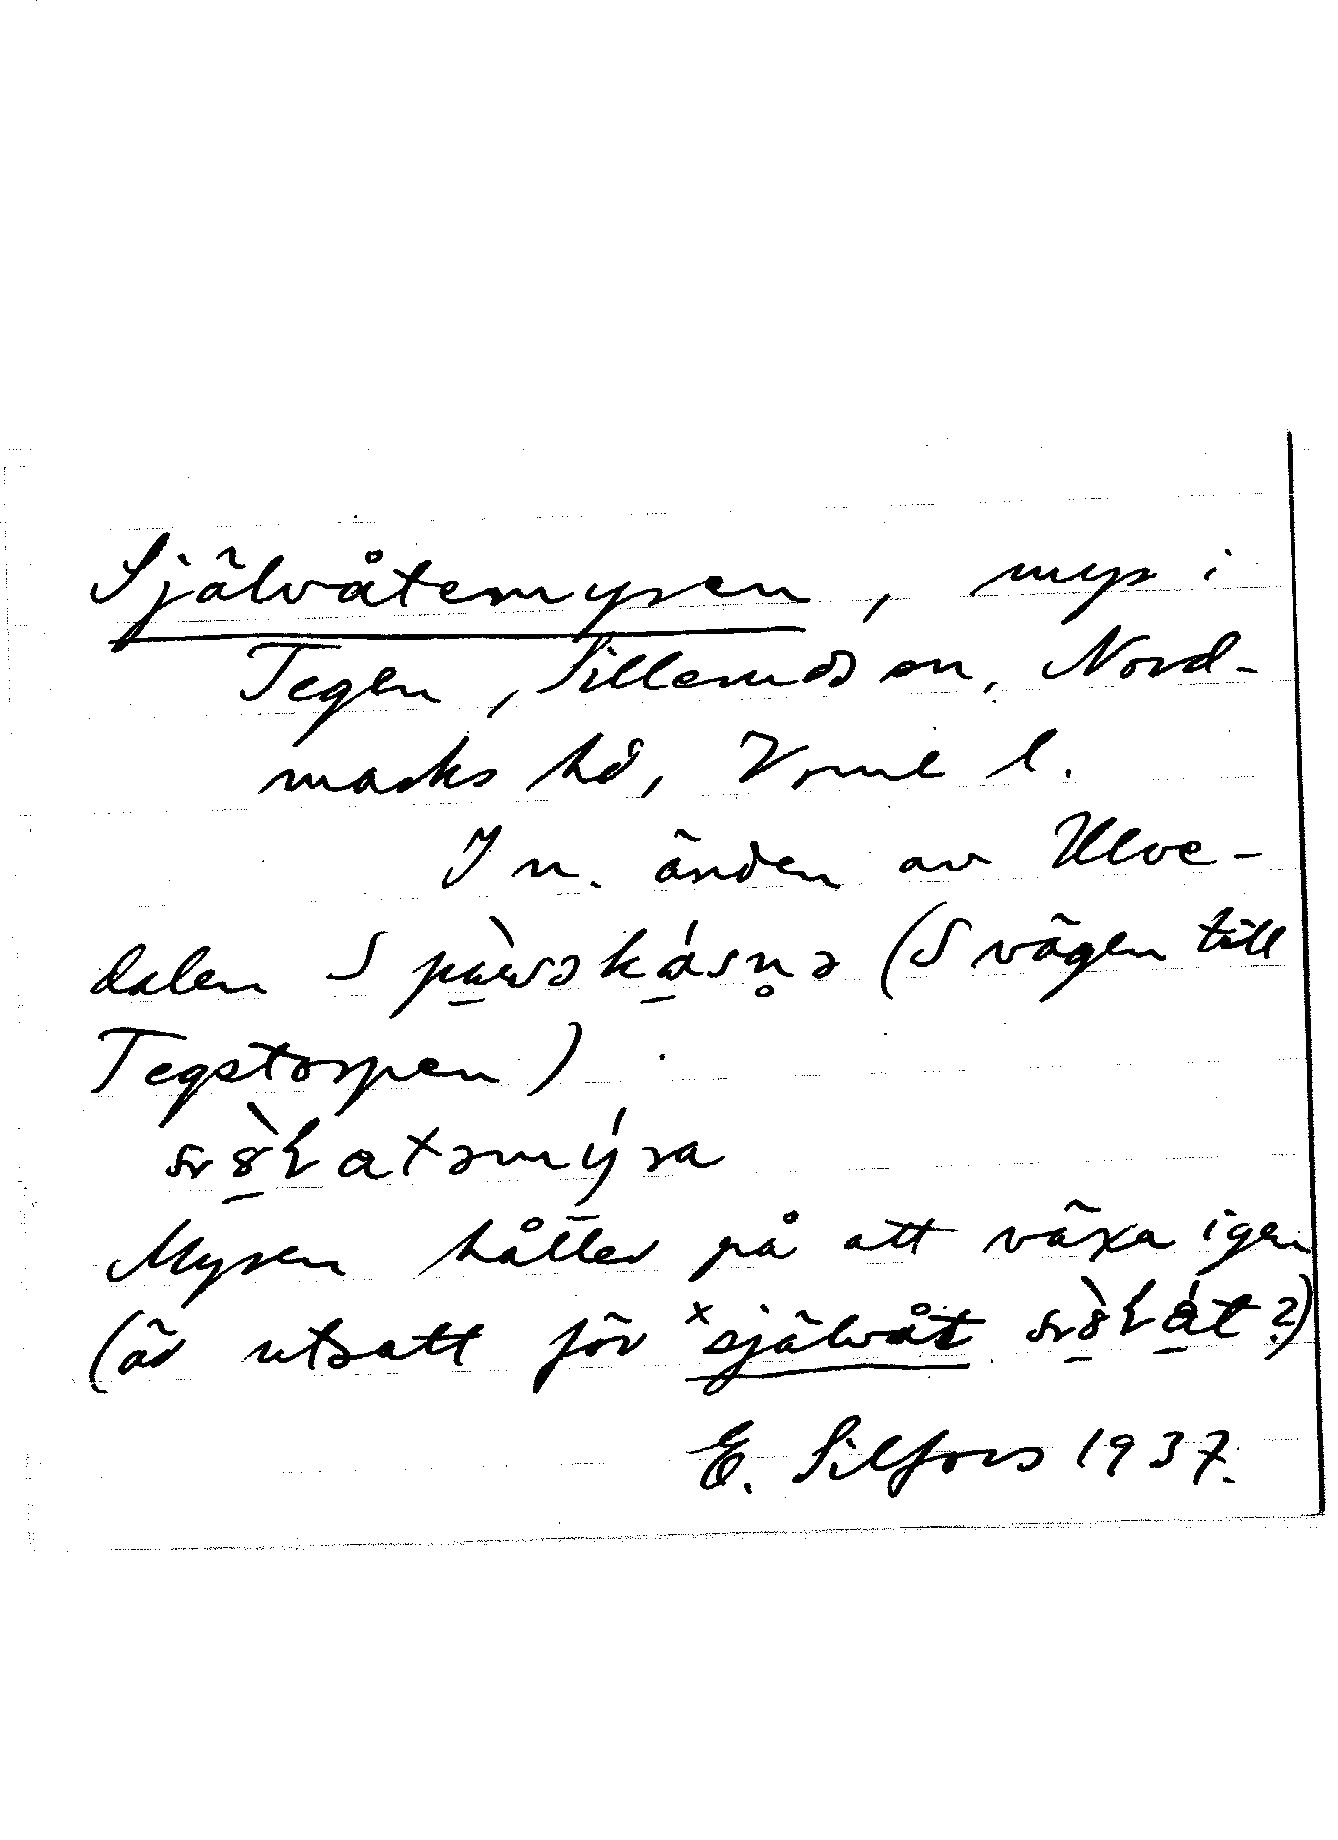 Självåtemyren, myr i
Tegen, Sillerudssn, Nord-
marks hd, Vrml l.
I n. änden av Ulve-
dalen S (S vägen till
Tegstorpen)
Myren håller på att växa igen
(är utsatt för ˣsjälvåt ?)
E. Silfors 1937.